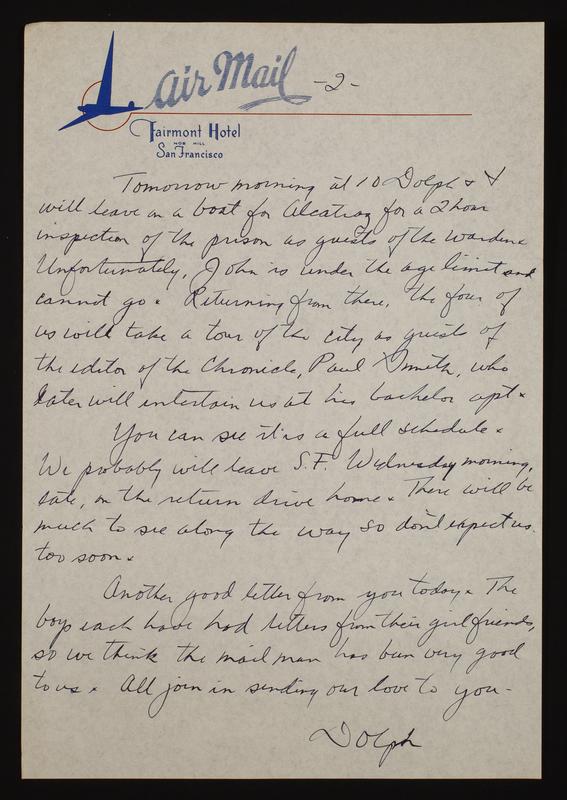 Air Mail -2-
Fairmont Hotel
NOB HILL
San Francisco
Tomorrow morning at 10 Dolph & I
will leave on a boat for Alcatraz for a 2 hour
inspection of the prison as guests of the warden.
Unfortunately, John is under the age limit and
cannot go. Returning from there, the four of
us will take a tour of the city as guests of
the editor of the Chronicle, Paul Smith, who
later will entertain us at his bachelor apt.
You can see it is a full schedule.
We probably will leave S.F. Wednesday morning,
late, on the return drive home. There will be
much to see along the way so don't expect us
too soon.
Another good letter from you today. The
boys each have had letters from their girl friends,
so we think the mail man has been very good
to us. All join in sending our love to you-
Dolph